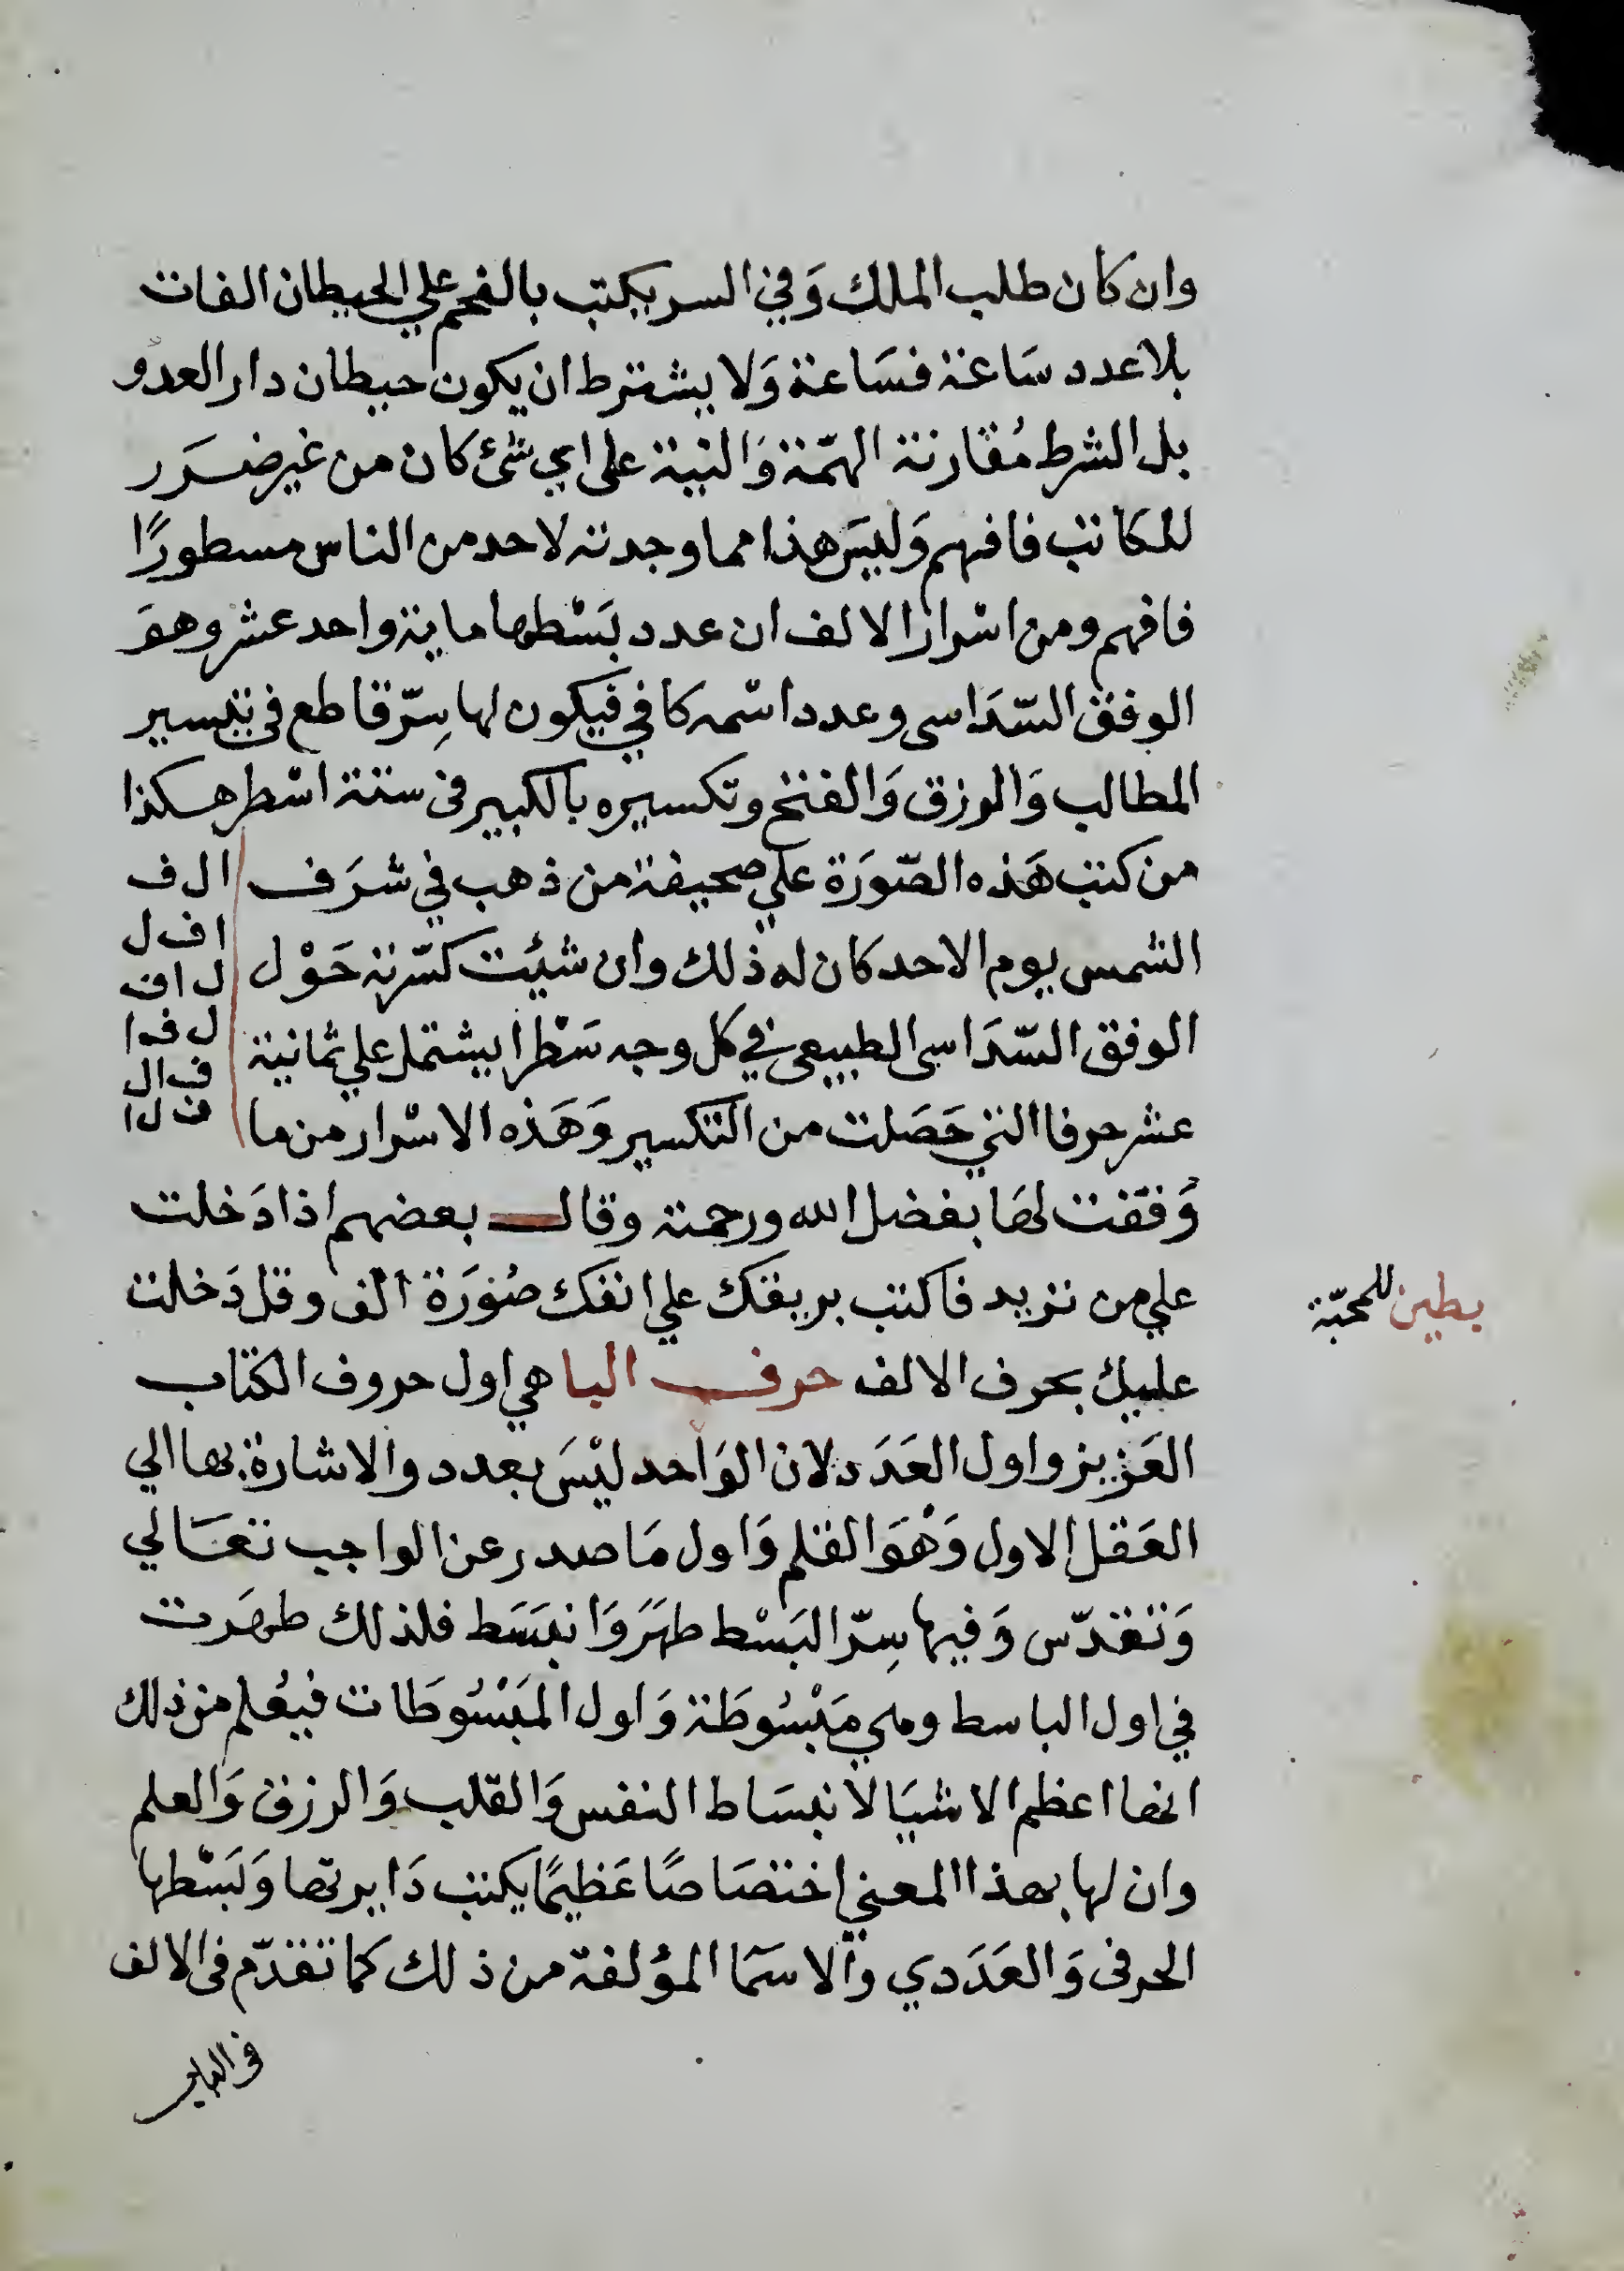 وان كان طلب الملك وَفي السر يكتب بالفحم علي الحيطان الفات
بلا عدد سَاعة فسَاعة وَلا يشترط ان يكون حيطان دار العدوّ
بل الشرط مُقارنة الهمّة وَالنية على اي شئ كان من غير ضرَر
للكاتب فافهم وَليسَ هذا مما وجدته لاحد من الناس مسطورًا
فافهم ومن اسْرار الالف ان عدد بَسْطها ماية واحد عشر وهوَ
الوفق السّدَاسى وعدد اسْمه كافي فيكون لها سِرّ قاطع فى تيسير
المطالب وَالرزق وَالفتح وتكسيره بالكبير فى ستة اسْطر هكذا
من كتب هَذه الصّورَة علي صحيفة من ذهب في شرَف
الشمس يوم الاحد كان له ذلك وان شيت كسّرته حَوْل
الوفق السّدَاسى الطبيعى في كل وجه سَطْرا يشتمل علي ثمانية
عشر حرفا التي حَصَلت من التكسير وَهَذه الاسْرار من ما
ا ل ف
ا ف ل
ل ا ف
ل ف ا
ف ا ل
ف ل ا
وُفقت لهَا بفضل الله ورحمته وقال بعضهم اذا دَخلت
علي من تريد فاكتب بريقك علي انفك صُورَة الف وقل دَخلت
عليك بحرف الالف حرف البا هي اول حروف الكتاب
العَزيز واول العَدَد لان الوَاحد ليْسَ بعدد والاشارة بها الي
العَقل الاول وَهْوَ القلم وَاول مَا صدر عن الواجب تعَالي
وَتقدّس وَفيها سِرّ البَسْط طهَرَ وَانبَسَط فلذلك طهَرت
في اول الباسط وهي مَبْسُوطَة وَاول المَبْسُوطَات فيعُلم من ذلك
انها اعظم الاشيَا لانبسَاط النفس وَالقلب وَالرزق وَالعلم
وان لها بهذا المعني اختصَاصًا عَظيمًا يكتب دَايرتها وَبَسْطها
الحرفى وَالعَدَدي وَالاسمَا المؤلفة من ذلك كما تقدّم فى الالف
بطين للمحبّة